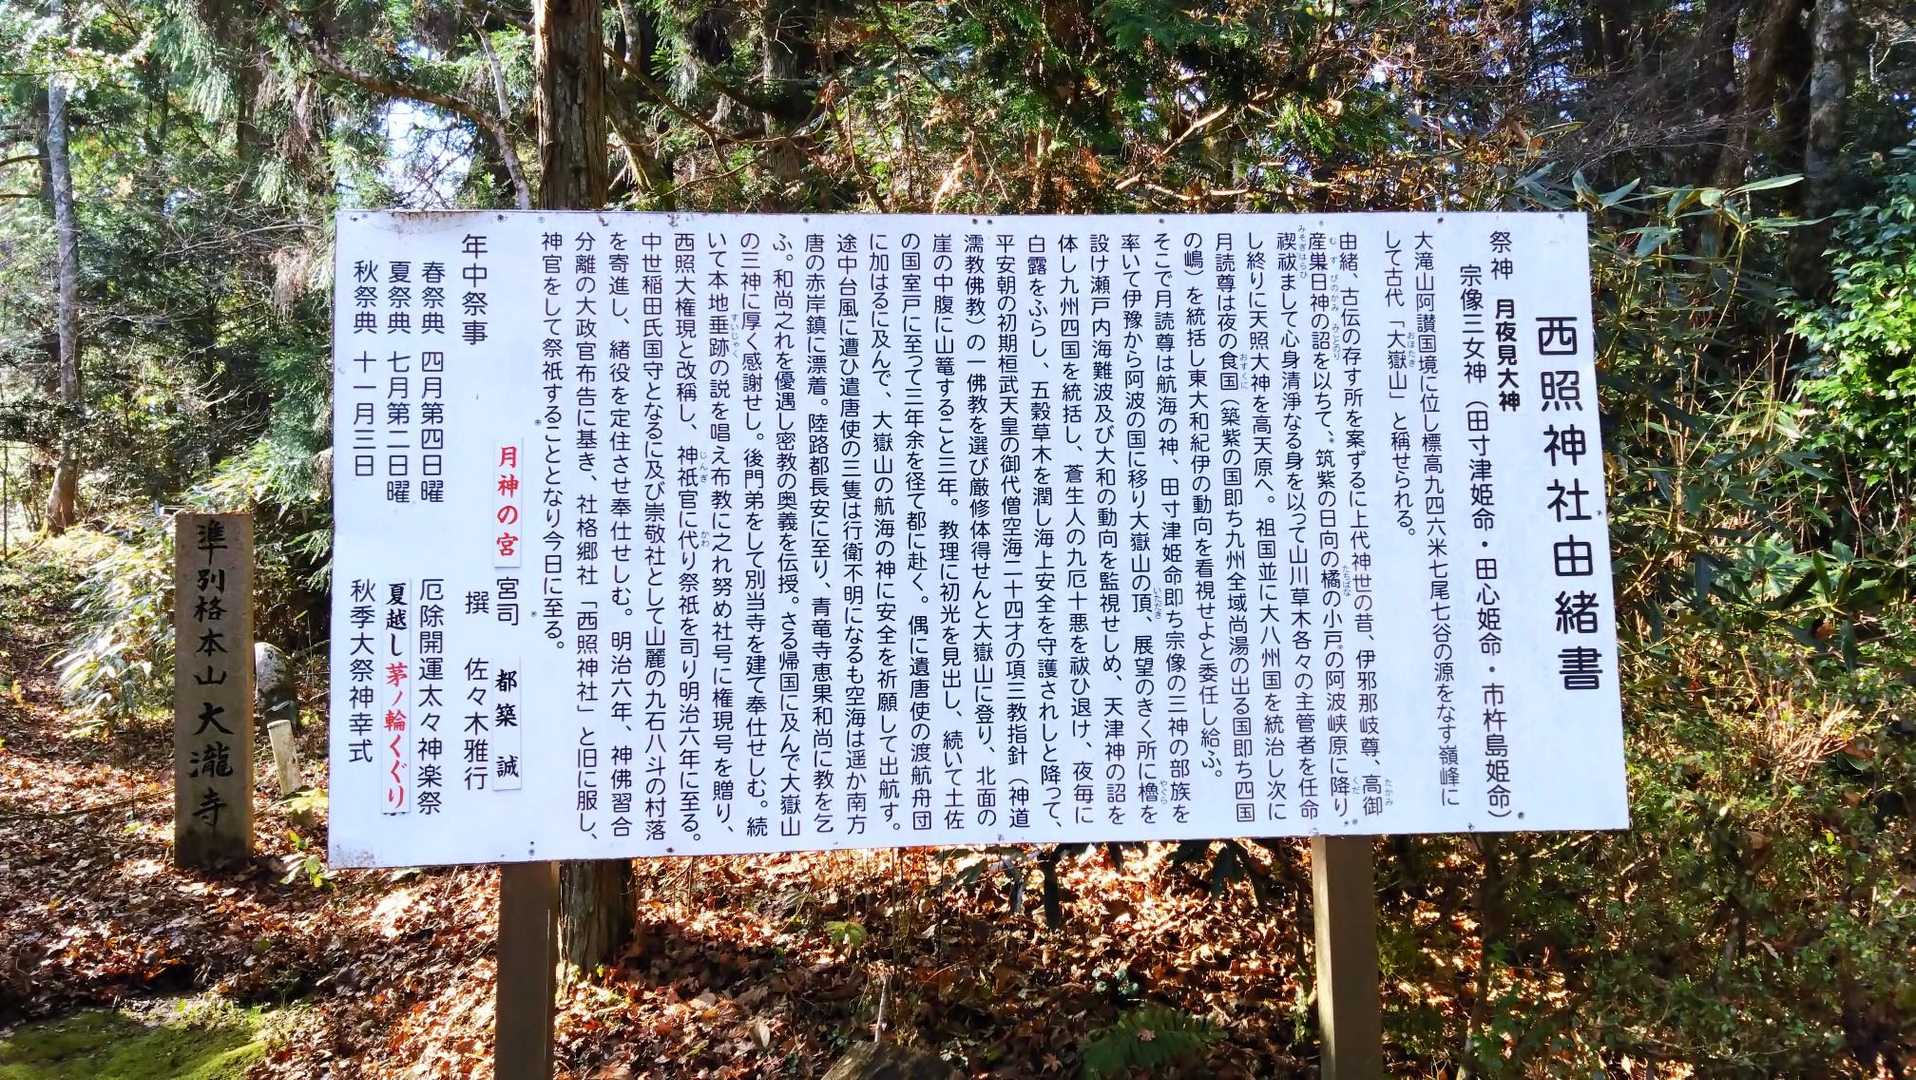 西照神社由緒書
祭神 月夜見大神
宗像三女神（田寸津姫命・田心姫命・市杵島姫命）
大滝山阿讃国境に位し標高九四六米七尾七谷の源をなす嶺峰に
して古代「大嶽山」と稱せられる。
おほたき
由緒、古伝の存す所を案ずるに上代神世の昔、伊邪那岐尊、高御
たかみ
産巣日神の詔を以ちて、筑紫の日向の橘の小戸の阿波岐原に降り
むすびのかみ みことのり たちばな くだ
禊祓まして心身清淨なる身を以って山川草木各々の主管者を任命
みそぎはらひ
し終りに天照大神を高天原へ。祖国並に大八州国を統治し次に
月読尊は夜の食国（築紫の国即ち九州全域尚湯の出る国即ち四国
おすくに
の嶋）を統括し東大和紀伊の動向を看視せよと委任し給ふ。
そこで月読尊は航海の神、田寸津姫命即ち宗像の三神の部族を
率いて伊豫から阿波の国に移り大嶽山の頂、展望のきく所に櫓を
いただき やぐら
設け瀬戸内海難波及び大和の動向を監視せしめ、天津神の詔を
体し九州四国を統括し、蒼生人の九厄十悪を祓ひ退け、夜毎に
白露をふらし、五穀草木を潤し海上安全を守護されしと降って、
平安朝の初期桓武天皇の御代僧空海二十四才の項三教指針（神道
濡教佛教）の一佛教を選び厳修体得せんと大嶽山に登り、北面の
崖の中腹に山篭すること三年。教理に初光を見出し、続いて土佐
の国室戸に至って三年余を径て都に赴く。偶に遺唐使の渡航舟団
に加はるに及んで、大嶽山の航海の神に安全を祈願して出航す。
途中台風に遭ひ遣唐使の三隻は行衛不明になるも空海は遥か南方
唐の赤岸鎮に漂着。陸路都長安に至り、青竜寺恵果和尚に教を乞
ふ。和尚之れを優遇し密教の奥義を伝授。さる帰国に及んで大嶽山
の三神に厚く感謝せし。後門弟をして別当寺を建て奉仕せしむ。続
いて本地垂跡の説を唱え布教に之れ努め社号に権現号を贈り、
すいじゃく
西照大権現と改稱し、神祇官に代り祭祇を司り明治六年に至る。
じんぎ かわ
中世稲田氏国守となるに及び崇敬社として山麗の九石八斗の村落
を寄進し、緒役を定住させ奉仕せしむ。明治六年、神佛習合
分離の大政官布告に基き、社格郷社「西照神社」と旧に服し、
神官をして祭祇することとなり今日に至る。
月神の宮 宮司 都築 誠
撰 佐々木雅行
年中祭事
春祭典 四月第四日曜 厄除開運太々神楽祭
夏祭典 七月第二日曜 夏越し茅ノ輪くぐり
秋祭典 十一月三日 秋季大祭神幸式
準別格本山大瀧寺